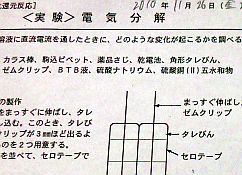 還元反応】
2010年11月26日(金
<実験>電気分解
溶液に直流電流を通したときに、どのような変化が起こるかを調べる
ガラス棒、駒込ピペット、薬品さじ、乾電池、角形タレびん、
ゼムクリップ、BTB液、硫酸ナトリウム、硫酸銅(Ⅱ)五水和物
の製作
まっすぐに伸ばし、タレ
し込む。このとき、タレび
クリップが3mmほど出るよ
ものを2つ用意する。
を並べて、セロテープで
まっすぐ伸ばし
ゼムクリップ
タレびん
セロテープ